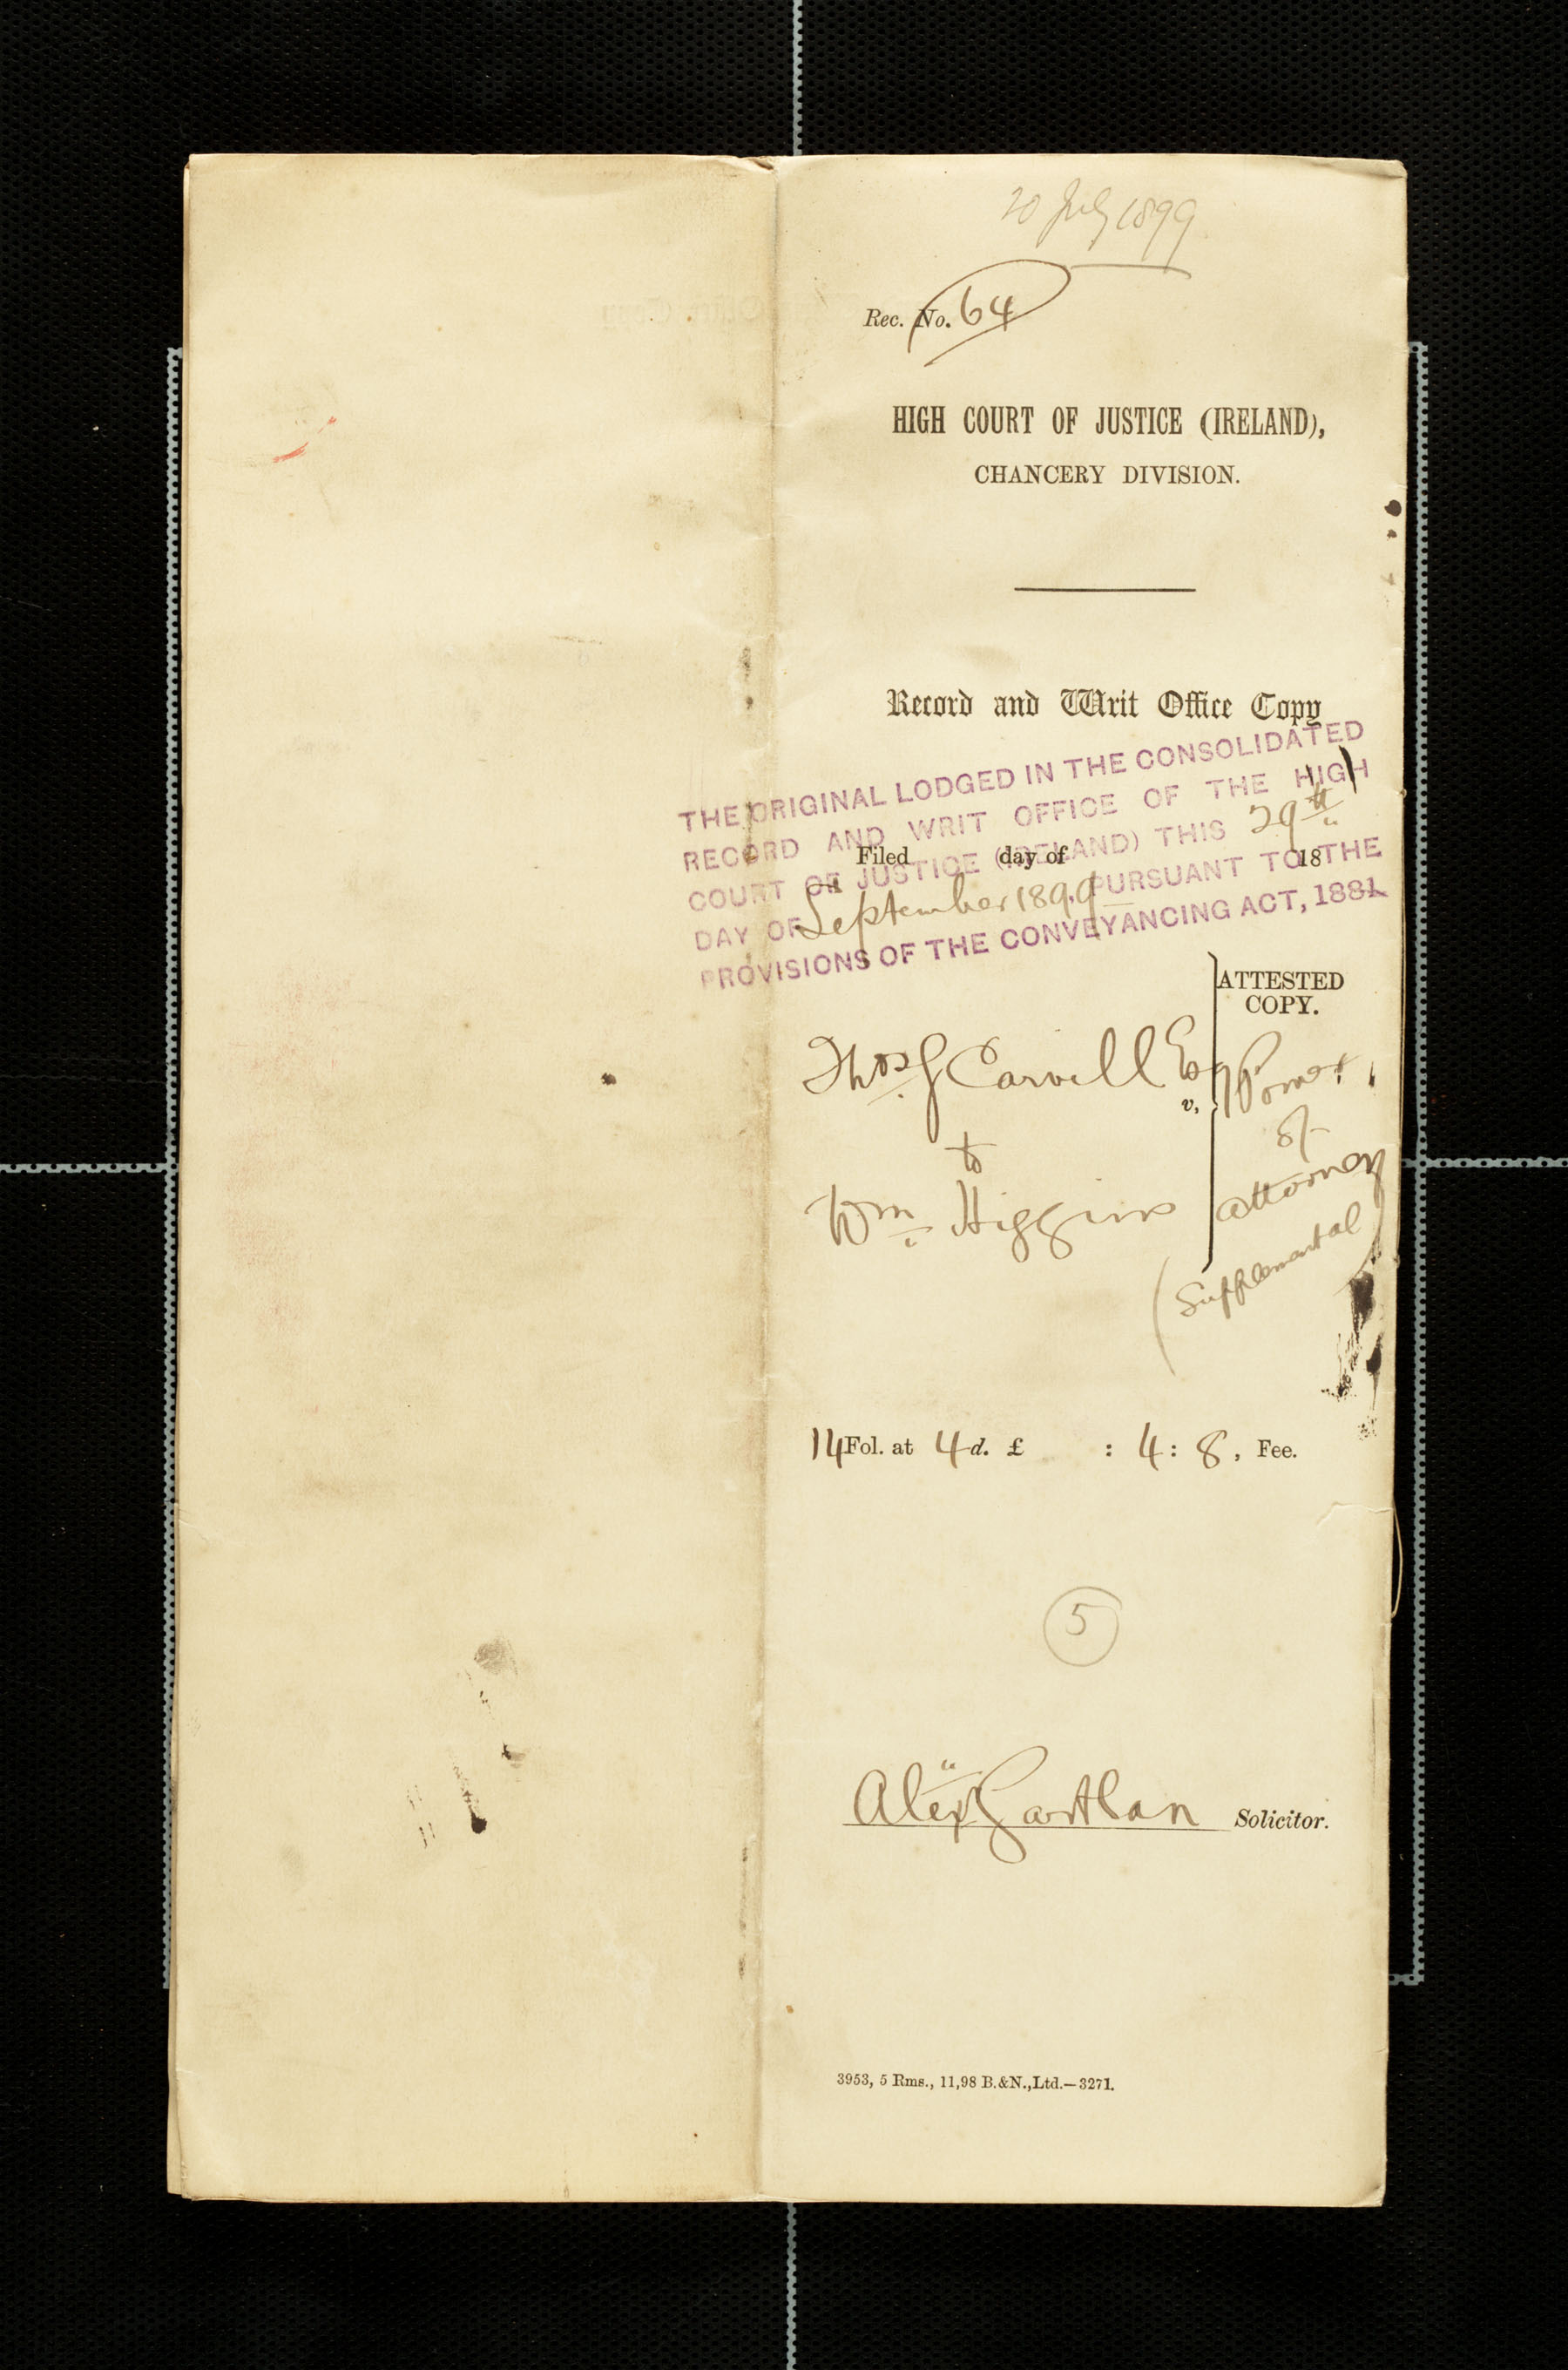 20 July 1899
Rec. No. 64
HIGH COURT OF JUSTICE (IRELAND),
CHANCERY DIVISION.
Record and Writ Office Copy
THE ORIGINAL LODGED IN THE CONSOLIDATED
RECORD AND WRIT OFFICE OF THE HIGH
COURT OF JUSTICE (IRELAND) THIS 29th
Filed day of 18
DAY OF September 1899 PURSUANT TO THE
PROVISIONS OF THE CONVEYANCING ACT, 1881
ATTESTED
COPY.
Thos J Carvill Esq
v.
to
Wm Higgins
Power
of
attorney
(Supplemental)
14 Fol. at 4d. £ : 4 : 8, Fee.
5
Alex Gartlan Solicitor.
3953, 5 Rms., 11,98 B.&N.,Ltd.—3271.